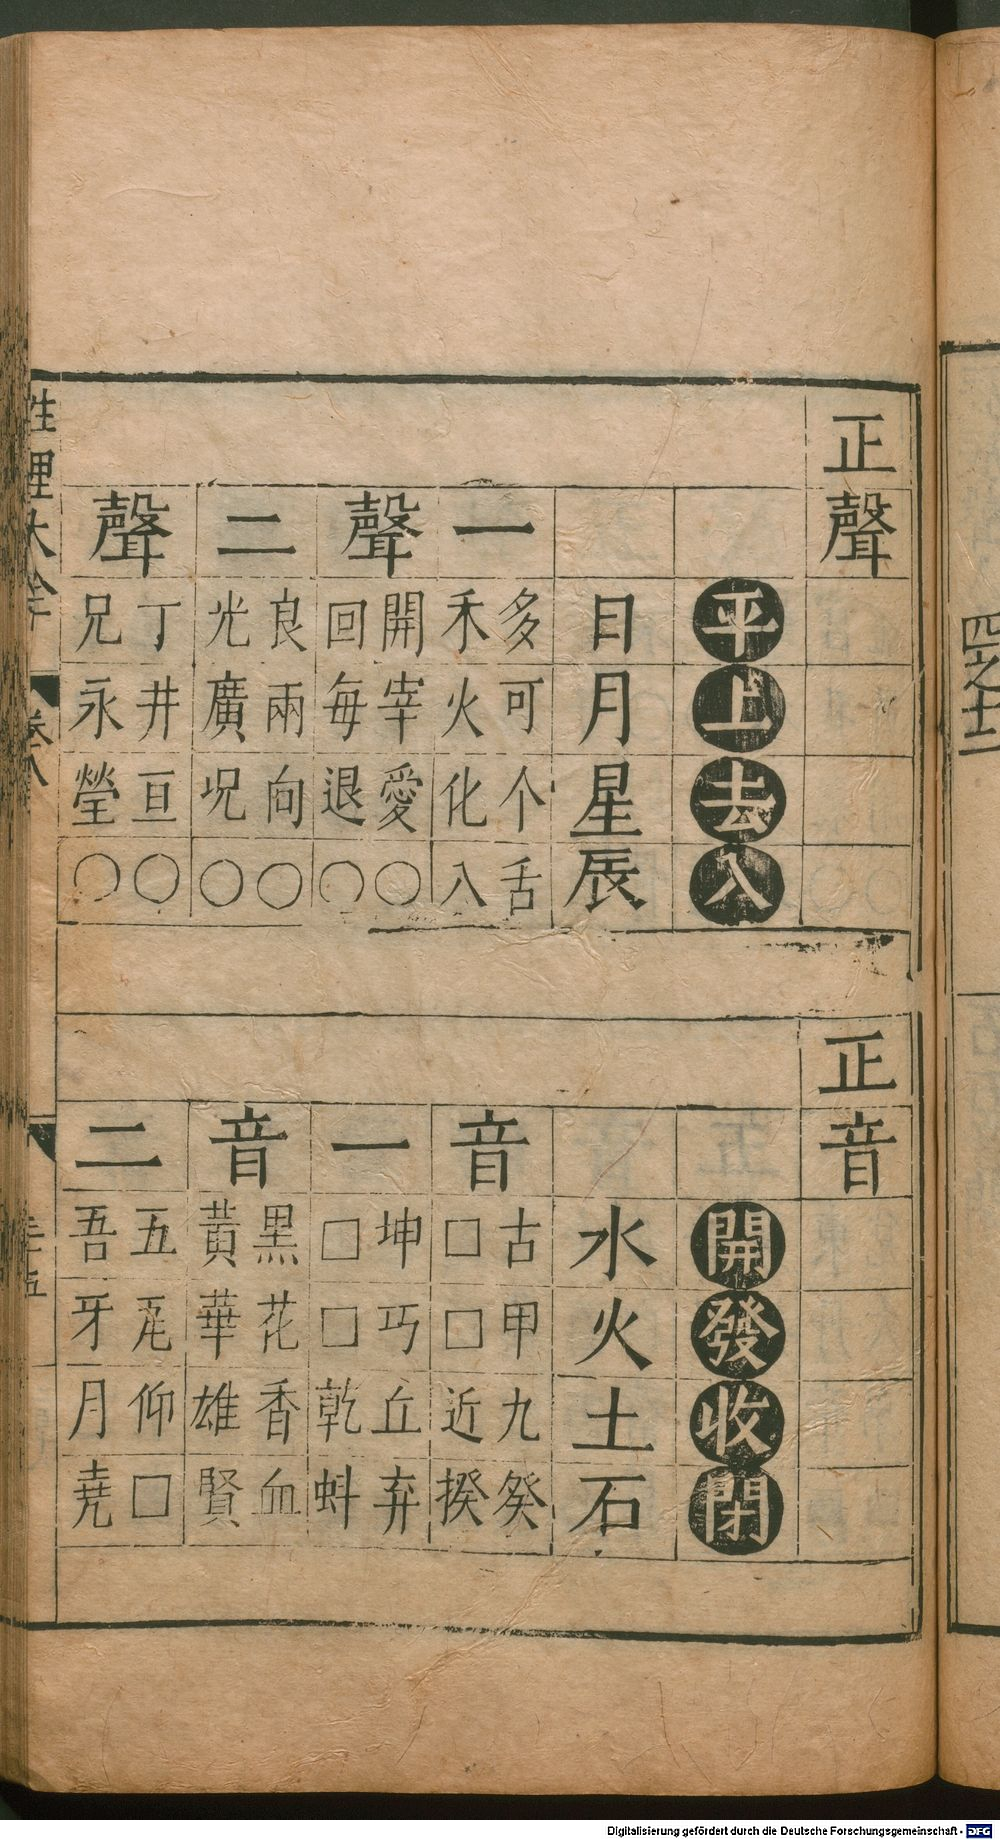 正聲
平上去入
日月星辰
一聲
多可个舌
禾火化入
開宰愛○
回每退○
二聲
良兩向○
光廣況○
丁井亘○
兄永瑩○
正音
開發收閉
水火土石
音一
古甲九癸
□□近揆
坤巧丘弃
□□乾蚪
音二
黑花香血
黃華雄賢
五瓦仰□
吾牙月堯
性理大全
卷八
四之十二
Digitalisierung gefördert durch die Deutsche Forschungsgemeinschaft - DFG